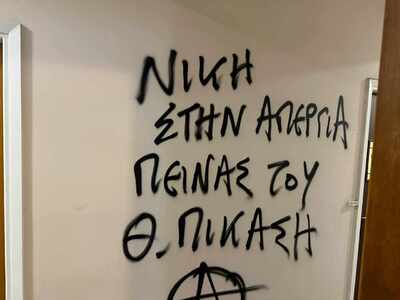 ΝΙΚΗ
ΣΤΗΝ ΑΠΕΡΓΙΑ
ΠΕΙΝΑΣ ΤΟΥ
Θ. ΠΙΚΑΣΗ